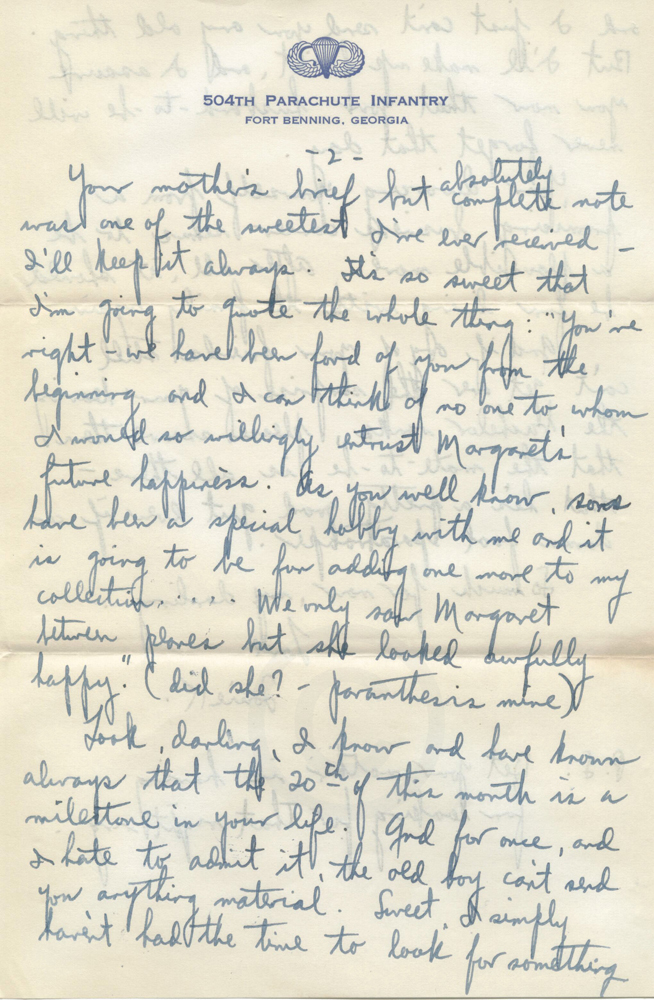 504TH PARACHUTE INFANTRY
FORT BENNING, GEORGIA
- 2 -
Your mother's brief but absolutely complete note
was one of the sweetest I've ever received -
I'll keep it always. It's so sweet that
I'm going to quote the whole thing: "You're
right - we have been fond of you from the
beginning and I can think of no one to whom
I would so willingly entrust Margaret's
future happiness. As you well know, sons
have been a special hobby with me and it
is going to be fun adding one more to my
collection..... We only saw Margaret
between planes but she looked awfully
happy." (did she? - paranthesis mine)
Look, darling, I know and have known
always that the 20th of this month is a
milestone in your life. And for once, and
I hate to admit it, the old boy can't send
you anything material. Sweet, I simply
haven't had the time to look for something